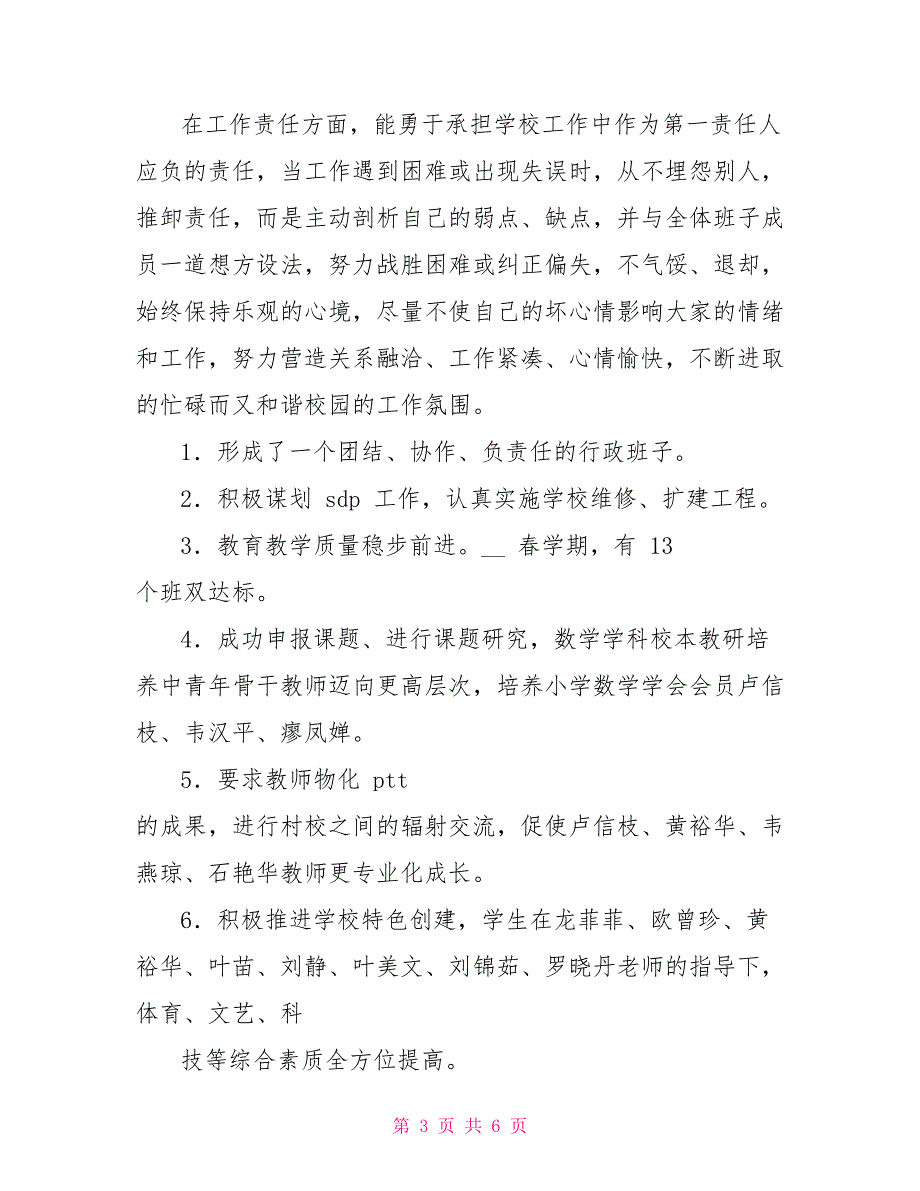 在工作责任方面，能勇于承担学校工作中作为第一责任人
应负的责任，当工作遇到困难或出现失误时，从不埋怨别人，
推卸责任，而是主动剖析自己的弱点、缺点，并与全体班子成
员一道想方设法，努力战胜困难或纠正偏失，不气馁、退却，
始终保持乐观的心境，尽量不使自己的坏心情影响大家的情绪
和工作，努力营造关系融洽、工作紧凑、心情愉快，不断进取
的忙碌而又和谐校园的工作氛围。
1．形成了一个团结、协作、负责任的行政班子。
2．积极谋划 sdp 工作，认真实施学校维修、扩建工程。
3．教育教学质量稳步前进。__ 春学期，有 13
个班双达标。
4．成功申报课题、进行课题研究，数学学科校本教研培
养中青年骨干教师迈向更高层次，培养小学数学学会会员卢信
枝、韦汉平、瘳凤婵。
5．要求教师物化 ptt
的成果，进行村校之间的辐射交流，促使卢信枝、黄裕华、韦
燕琼、石艳华教师更专业化成长。
6．积极推进学校特色创建，学生在龙菲菲、欧曾珍、黄
裕华、叶苗、刘静、叶美文、刘锦茹、罗晓丹老师的指导下，
体育、文艺、科
技等综合素质全方位提高。
第 3 页 共 6 页